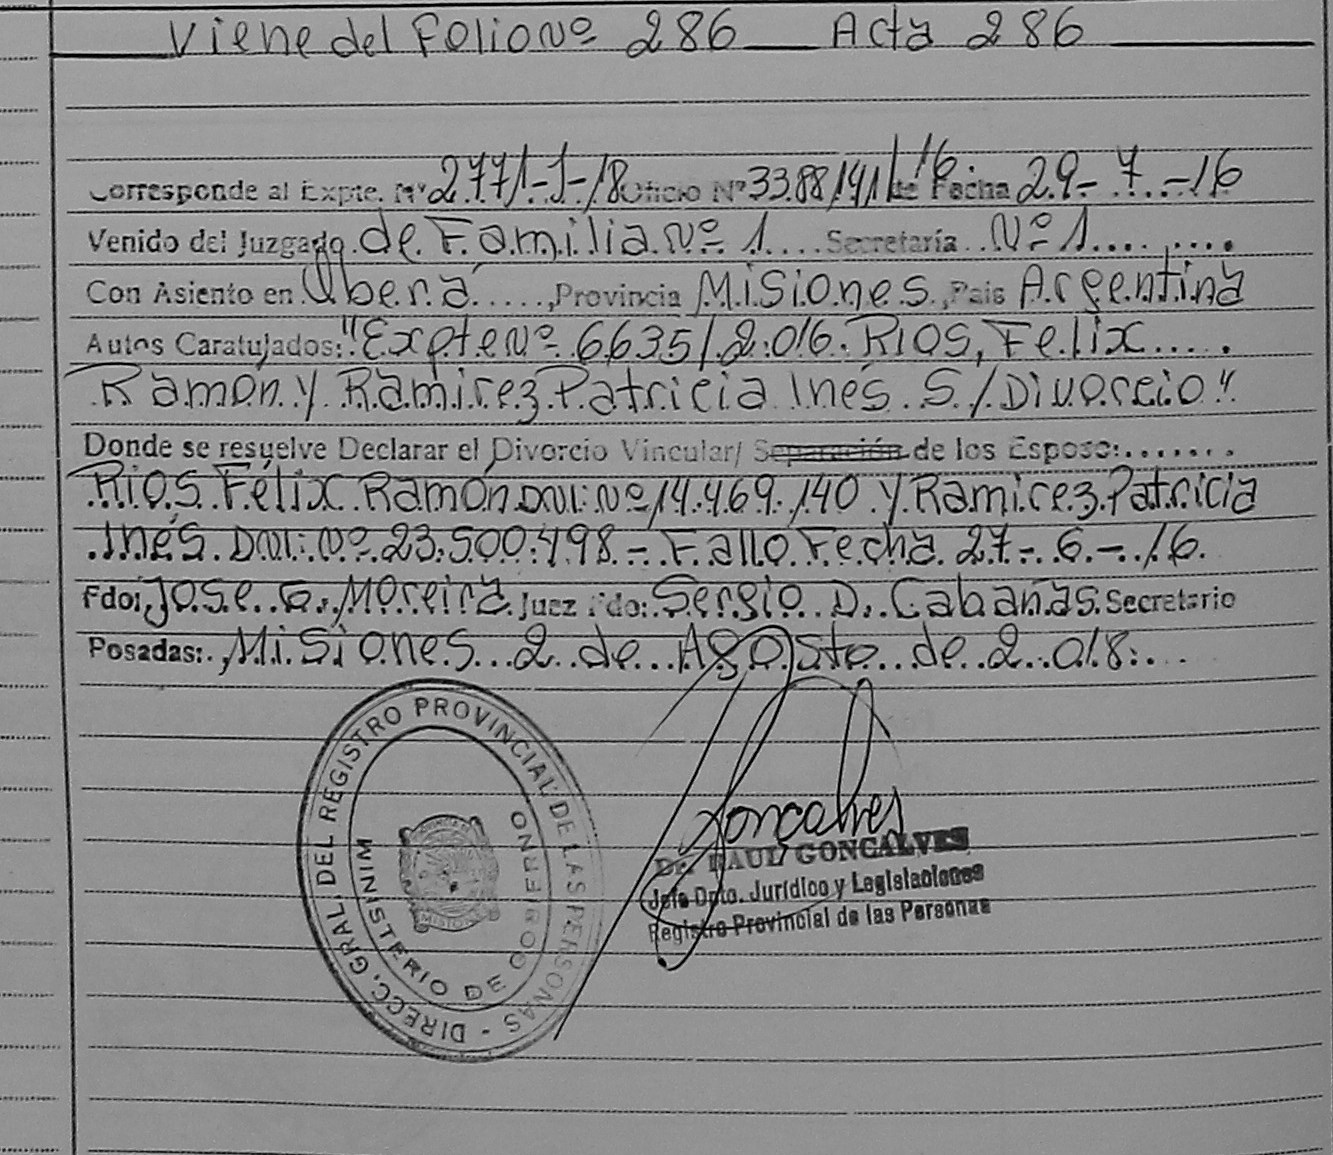 Viene del Folio Nº 286 Acta 286
Corresponde al Expte. Nº 2771-J-18 Oficio Nº 3388/41/16 de Fecha 29-7-16
Venido del Juzgado de Familia Nº 1.... Secretaría Nº 1....
Con Asiento en Oberá ....., Provincia Misiones, Pais Argentina
Autos Caratulados: "Expte Nº 6635/2016. RIOS, Felix....
Ramón y Ramirez Patricia Inés S/Divorcio"
Donde se resuelve Declarar el Divorcio Vincular/ Separación de los Esposo:.......
Rios Félix Ramón DNI: Nº 14.469.140 y Ramirez Patricia
Inés. DNI: Nº 23.500.498.- Fallo Fecha 27-6-16.
Fdo: Jose G. Moreira. Juez Fdo: Sergio D. Cabañas. Secretario
Posadas:., Misiones 2 de Agosto de 2.018....
DIRECC. GRAL. DEL REGISTRO PROVINCIAL DE LAS PERSONAS -
MINISTERIO DE GOBIERNO
MISIONES
Goncalves
Dr. RAUL GONCALVES
Jefe Dpto. Jurídico y Legislaciones
Registro Provincial de las Personas